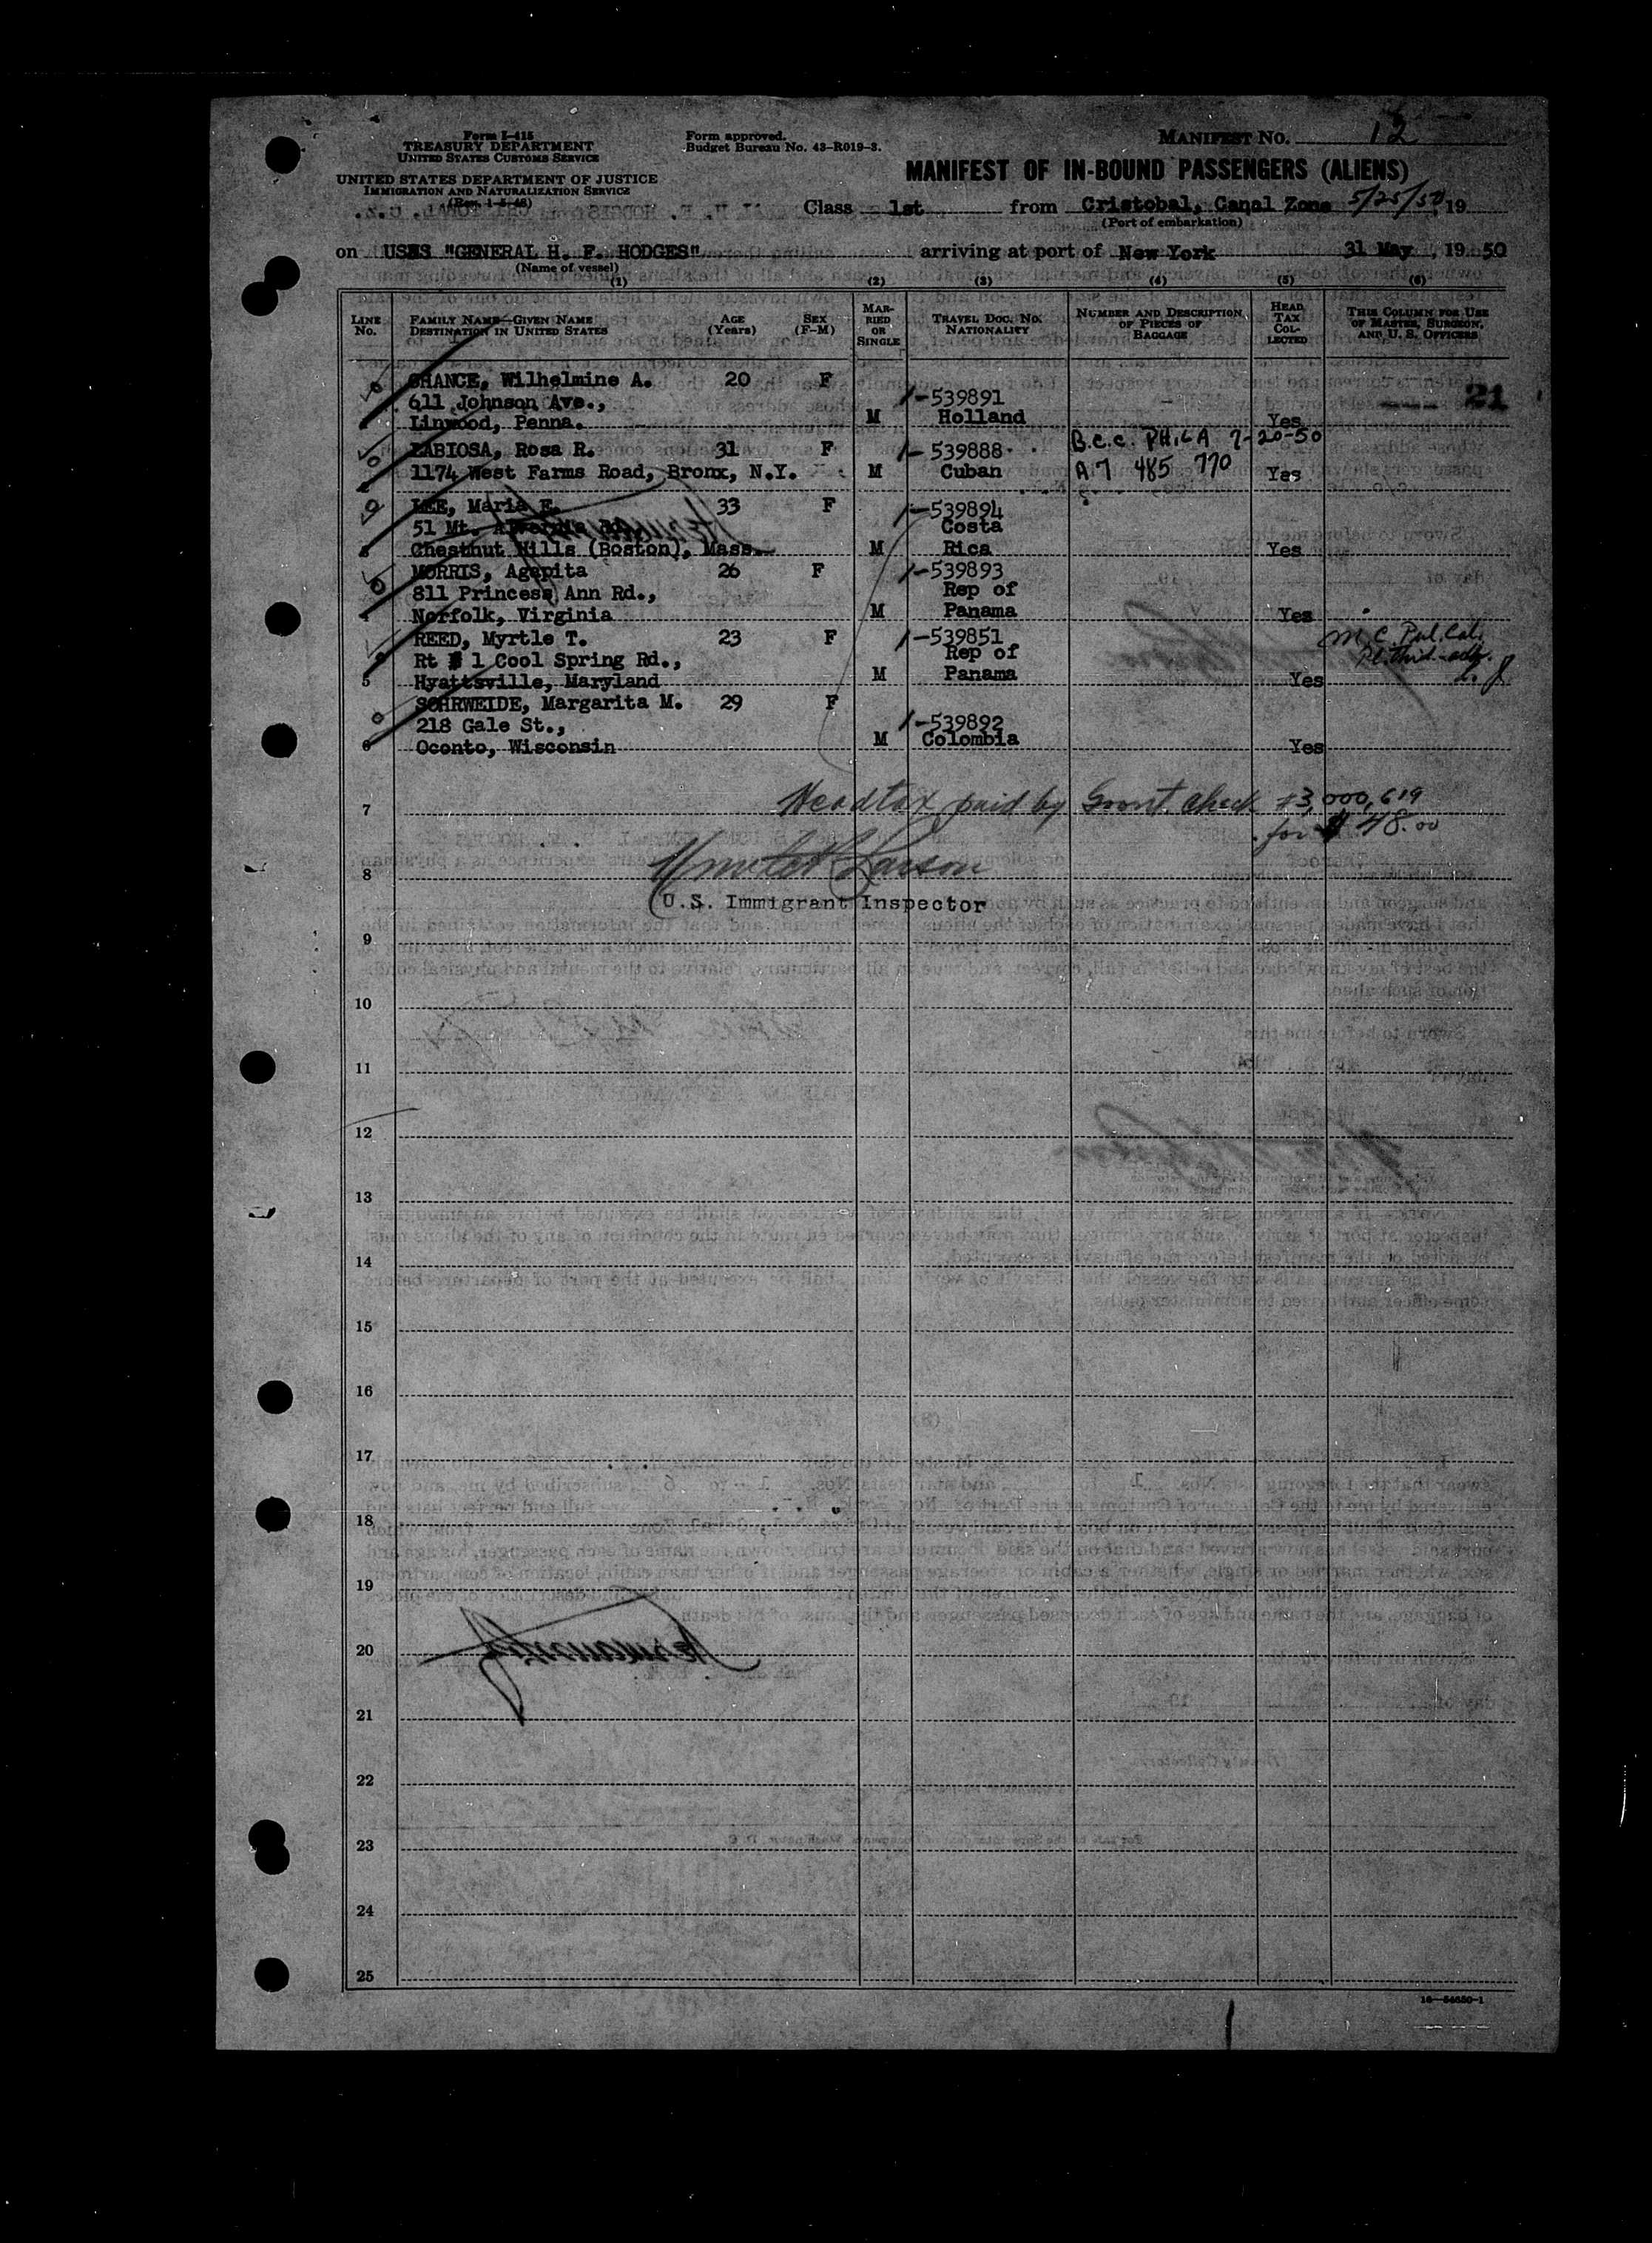 Form I-415
TREASURY DEPARTMENT
UNITED STATES CUSTOMS SERVICE
UNITED STATES DEPARTMENT OF JUSTICE
IMMIGRATION AND NATURALIZATION SERVICE
(Rev. 1-5-48)
Form approved.
Budget Bureau No. 43-R019-3.
MANIFEST No. 12
MANIFEST OF IN-BOUND PASSENGERS (ALIENS)
Class 1st from Cristobal, Canal Zone 5/25/50, 19
(Port of embarkation)
on USNS "GENERAL H. F. HODGES" arriving at port of New York 31 May, 19 50
(Name of vessel)
(1) (2) (3) (4) (5) (6)
LINE No. FAMILY NAME—GIVEN NAME DESTINATION IN UNITED STATES AGE (Years) SEX (F-M) MARRIED OR SINGLE TRAVEL DOC. NO. NATIONALITY NUMBER AND DESCRIPTION OF PIECES OF BAGGAGE HEAD TAX COLLECTED THIS COLUMN FOR USE OF MASTER, SURGEON, AND U. S. OFFICERS
CHANCE, Wilhelmine A. 20 F
611 Johnson Ave., -539891 21
Linwood, Penna. M Holland Yes
B.C.C. PHILA 7-20-50
RABIOSA, Rosa R. 31 F -539888
1174 West Farms Road, Bronx, N.Y. M Cuban A7 485 770 Yes
LEE, Maria E. 33 F -539894
51 Mt. Costa
3 Chestnut Hills (Boston), Mass. M Rica Yes
MORRIS, Agapita 26 F -539893
811 Princess Ann Rd., Rep of
4 Norfolk, Virginia M Panama Yes
REED, Myrtle T. 23 F -539851
Rt # 1 Cool Spring Rd., Rep of
5 Hyattsville, Maryland M Panama Yes
SCHRWEIDE, Margarita M. 29 F
218 Gale St., -539892
6 Oconto, Wisconsin M Colombia Yes
Headtax paid by Govnt. Check #3,000,619
7
for $48.00
8
Larson
U.S. Immigrant Inspector
9
10
11
12
13
14
15
16
17
18
19
20
21
22
23
24
25